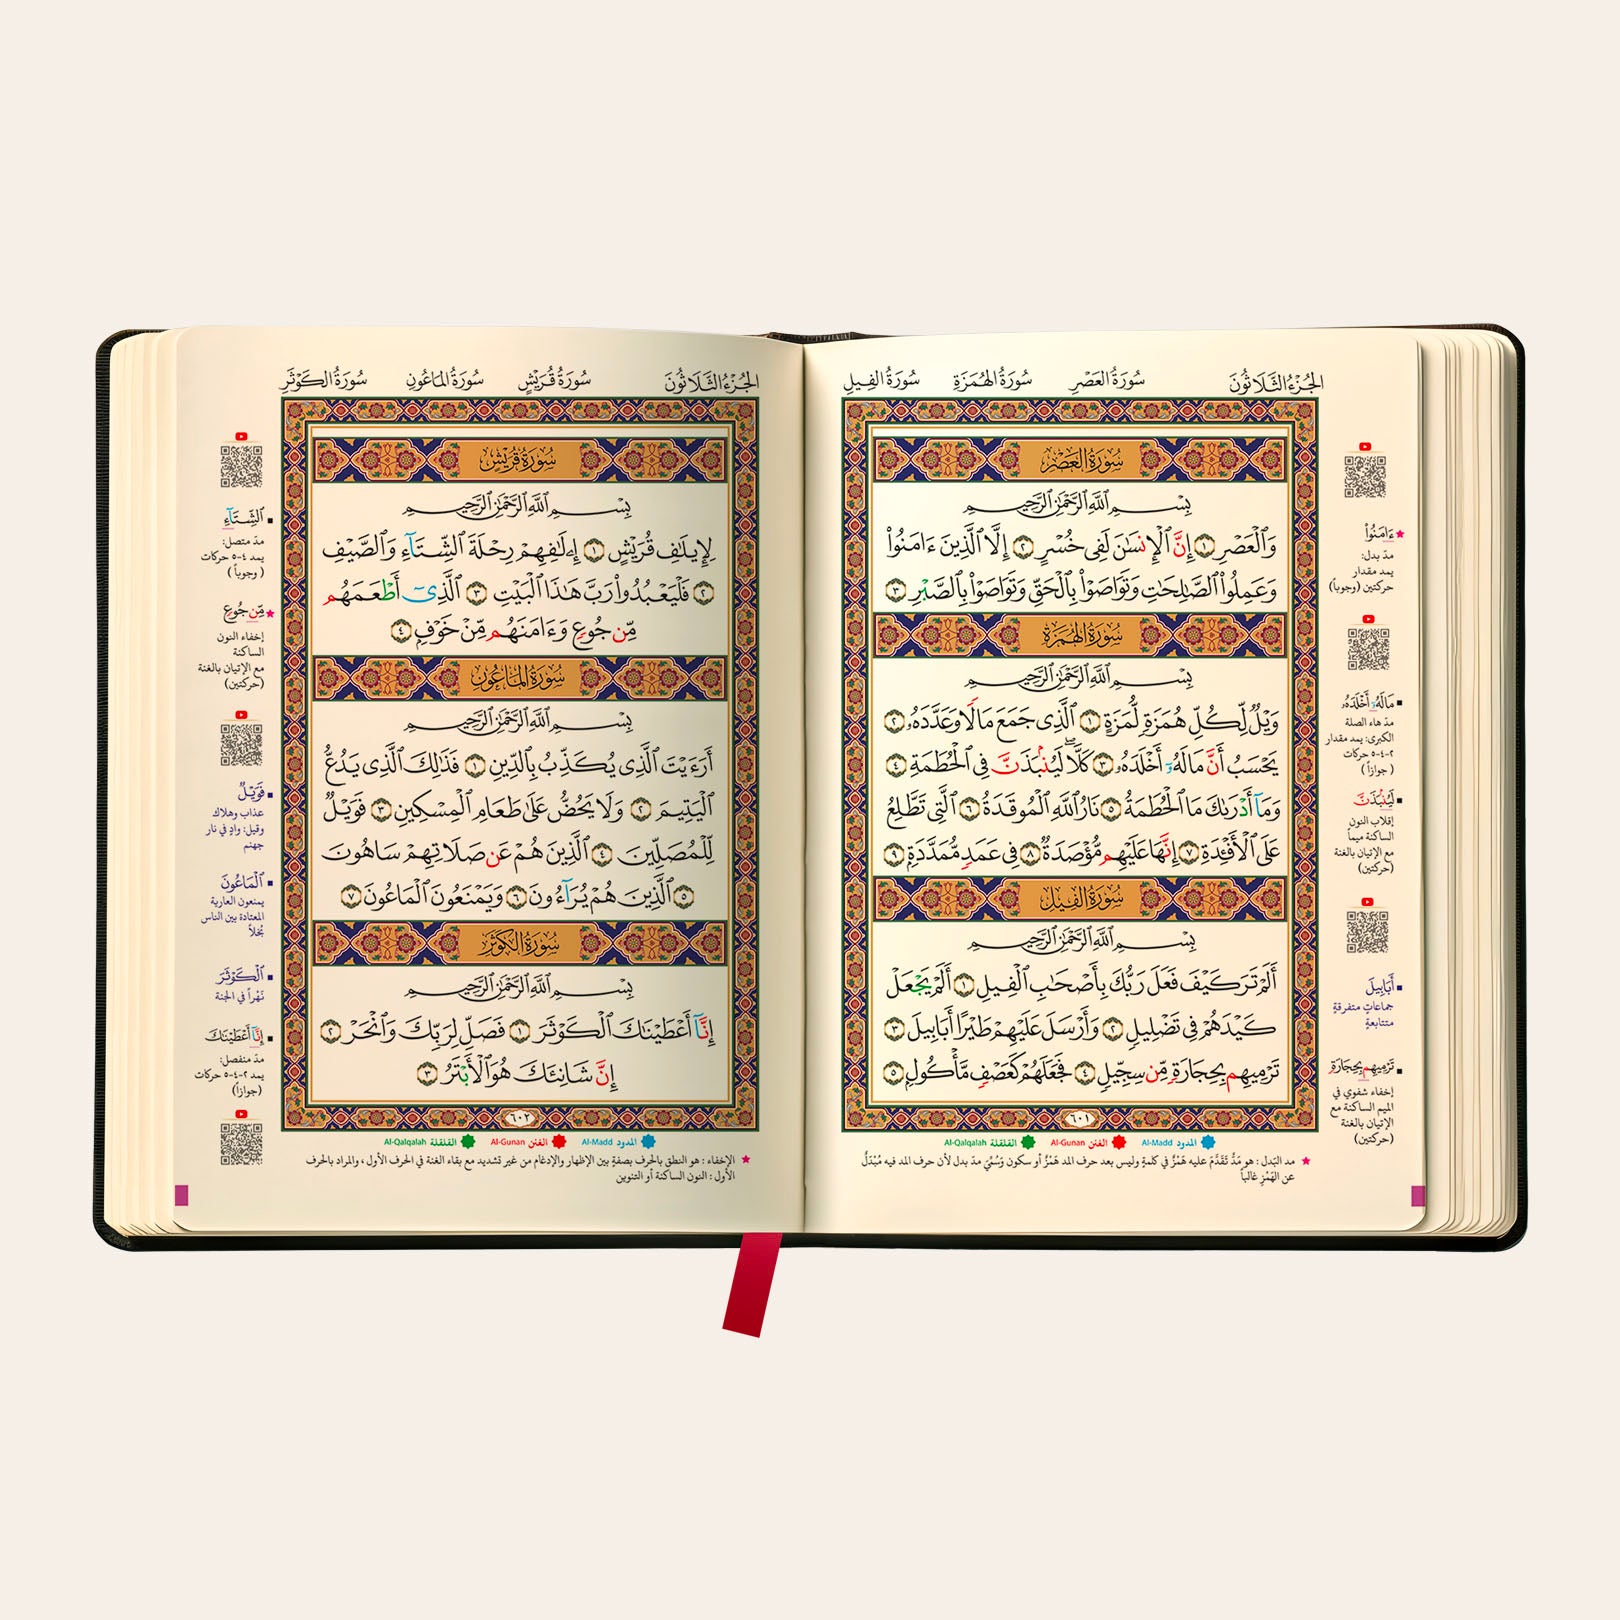 الجُزْءُ الثَّلَاثُونَ سُورَةُ العَصْرِ سُورَةُ الهُمَزَةِ سُورَةُ الفِيلِ
سُورَةُ العَصْرِ
بِسْمِ اللَّهِ الرَّحْمَٰنِ الرَّحِيمِ
وَٱلْعَصْرِ ١ إِنَّ ٱلْإِنسَٰنَ لَفِى خُسْرٍ ٢ إِلَّا ٱلَّذِينَ ءَامَنُوا۟
وَعَمِلُوا۟ ٱلصَّٰلِحَٰتِ وَتَوَاصَوْا۟ بِٱلْحَقِّ وَتَوَاصَوْا۟ بِٱلصَّبْرِ ٣
سُورَةُ الهُمَزَةِ
بِسْمِ اللَّهِ الرَّحْمَٰنِ الرَّحِيمِ
وَيْلٌ لِّكُلِّ هُمَزَةٍ لُّمَزَةٍ ١ ٱلَّذِى جَمَعَ مَالًا وَعَدَّدَهُۥ ٢
يَحْسَبُ أَنَّ مَالَهُۥٓ أَخْلَدَهُۥ ٣ كَلَّا ۖ لَيُنۢبَذَنَّ فِى ٱلْحُطَمَةِ ٤
وَمَآ أَدْرَىٰكَ مَا ٱلْحُطَمَةُ ٥ نَارُ ٱللَّهِ ٱلْمُوقَدَةُ ٦ ٱلَّتِى تَطَّلِعُ
عَلَى ٱلْأَفْـِٔدَةِ ٧ إِنَّهَا عَلَيْهِم مُّؤْصَدَةٌ ٨ فِى عَمَدٍ مُّمَدَّدَةٍۭ ٩
سُورَةُ الفِيلِ
بِسْمِ اللَّهِ الرَّحْمَٰنِ الرَّحِيمِ
أَلَمْ تَرَ كَيْفَ فَعَلَ رَبُّكَ بِأَصْحَٰبِ ٱلْفِيلِ ١ أَلَمْ يَجْعَلْ
كَيْدَهُمْ فِى تَضْلِيلٍ ٢ وَأَرْسَلَ عَلَيْهِمْ طَيْرًا أَبَابِيلَ ٣
تَرْمِيهِم بِحِجَارَةٍ مِّن سِجِّيلٍ ٤ فَجَعَلَهُمْ كَعَصْفٍ مَّأْكُولٍۭ ٥
٦٠١
المدود Al-Madd الغنن Al-Gunan القلقلة Al-Qalqalah
مد البَدل : هو مَدٌّ تَقَدَّمَ عليه هَمْزٌ في كلمةٍ وليس بعد حرف المد هَمْزٌ أو سكون وَسُمِّيَ مدّ بدل لأن حرف المد فيه مُبْدَلٌ
عن الهَمْزِ غالباً
ءَامَنُوا۟
مدّ بدل:
يمد مقدار
حركتين (وجوباً)
مَالَهُۥٓ أَخْلَدَهُۥ
مدّ هاء الصلة
الكبرى: يمد مقدار
٢-٤-٥ حركات
(جوازاً)
لَيُنۢبَذَنَّ
إقلاب النون
الساكنة ميماً
مع الإتيان بالغنة
(حركتين)
أَبَابِيلَ
جماعاتٍ متفرقةٍ
متتابعةٍ
تَرْمِيهِم بِحِجَارَةٍ
إخفاء شفوي في
الميم الساكنة مع
الإتيان بالغنة
(حركتين)
الجُزْءُ الثَّلَاثُونَ سُورَةُ قُرَيْشٍ سُورَةُ المَاعُونِ سُورَةُ الكَوْثَرِ
سُورَةُ قُرَيْشٍ
بِسْمِ اللَّهِ الرَّحْمَٰنِ الرَّحِيمِ
لِإِيلَٰفِ قُرَيْشٍ ١ إِۦلَٰفِهِمْ رِحْلَةَ ٱلشِّتَآءِ وَٱلصَّيْفِ
٢ فَلْيَعْبُدُوا۟ رَبَّ هَٰذَا ٱلْبَيْتِ ٣ ٱلَّذِىٓ أَطْعَمَهُم
مِّن جُوعٍ وَءَامَنَهُم مِّنْ خَوْفٍۭ ٤
سُورَةُ المَاعُونِ
بِسْمِ اللَّهِ الرَّحْمَٰنِ الرَّحِيمِ
أَرَءَيْتَ ٱلَّذِى يُكَذِّبُ بِٱلدِّينِ ١ فَذَٰلِكَ ٱلَّذِى يَدُعُّ
ٱلْيَتِيمَ ٢ وَلَا يَحُضُّ عَلَىٰ طَعَامِ ٱلْمِسْكِينِ ٣ فَوَيْلٌ
لِّلْمُصَلِّينَ ٤ ٱلَّذِينَ هُمْ عَن صَلَاتِهِمْ سَاهُونَ
٥ ٱلَّذِينَ هُمْ يُرَآءُونَ ٦ وَيَمْنَعُونَ ٱلْمَاعُونَ ٧
سُورَةُ الكَوْثَرِ
بِسْمِ اللَّهِ الرَّحْمَٰنِ الرَّحِيمِ
إِنَّآ أَعْطَيْنَٰكَ ٱلْكَوْثَرَ ١ فَصَلِّ لِرَبِّكَ وَٱنْحَرْ ٢
إِنَّ شَانِئَكَ هُوَ ٱلْأَبْتَرُ ٣
٦٠٢
المدود Al-Madd الغنن Al-Gunan القلقلة Al-Qalqalah
الإخفاء : هو النطق بالحرف بصفةٍ بين الإظهار والإدغام من غير تشديد مع بقاء الغنة في الحرف الأول ، والمراد بالحرف
الأول : النون الساكنة أو التنوين
ٱلشِّتَآءِ
مدّ متصل:
يمد ٤-٥ حركات
(وجوباً)
مِّن جُوعٍ
إخفاء النون
الساكنة
مع الإتيان بالغنة
(حركتين)
فَوَيْلٌ
عذاب وهلاك
وقيل: وادٍ في نار
جهنم
ٱلْمَاعُونَ
يمنعون العارية
المعتادة بين الناس
بُخلاً
ٱلْكَوْثَرَ
نَهْراً في الجنة
إِنَّآ أَعْطَيْنَٰكَ
مدّ منفصل:
يمد ٢-٤-٥ حركات
(جوازاً)